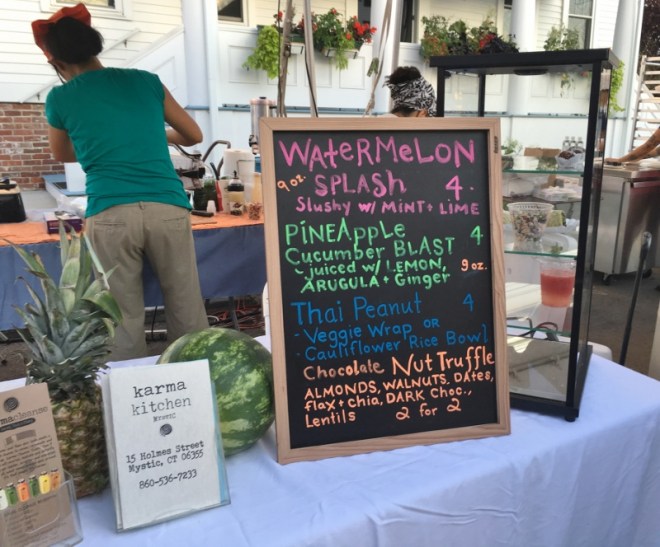 WATERMELON
9oz. SPLASH 4.
Slushy w/ MINT + LIME
PINEAPPLE
Cucumber BLAST 4
- juiced w/ LEMON, 9oz.
ARUGULA + Ginger
Thai Peanut 4
- Veggie Wrap OR
- Cauliflower Rice Bowl
Chocolate Nut Truffle
ALMONDS, WALNUTS, DAtes,
flax + chia, DARK Choc.,
Lentils 2 for 2
karma
kitchen
MYSTIC
15 Holmes Street
Mystic, CT 06355
860-536-7233